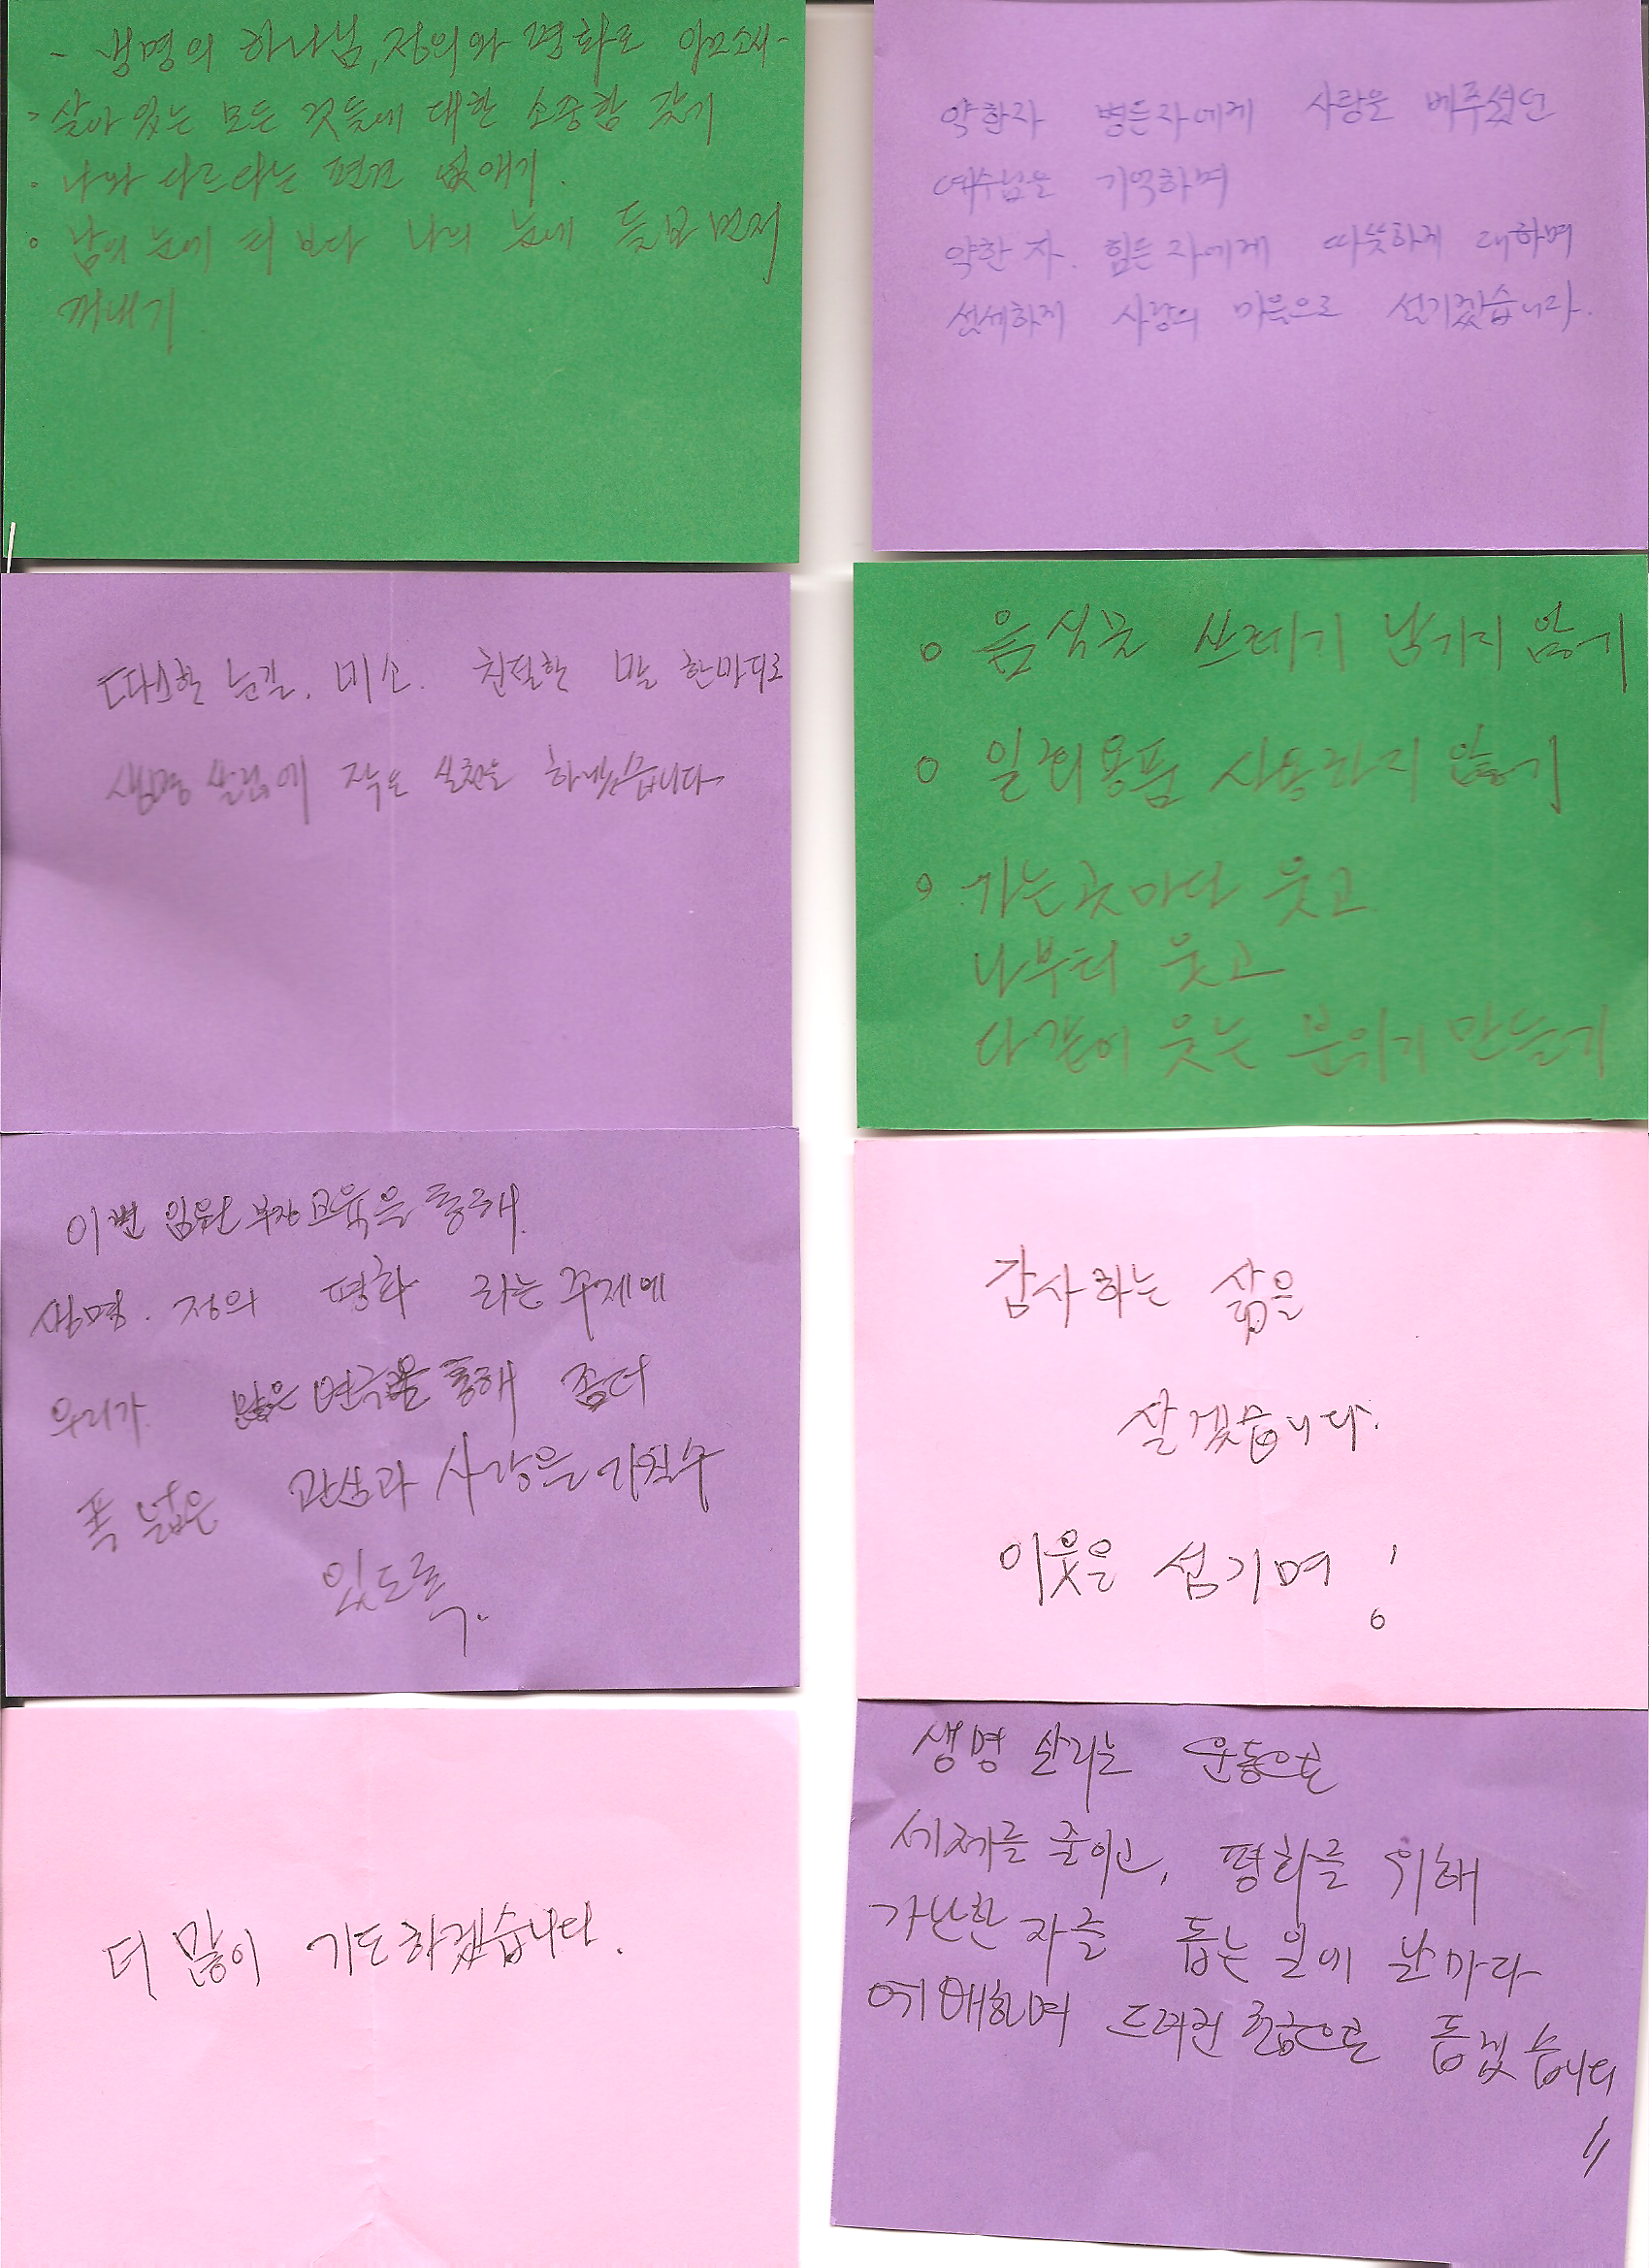 - 생명의 하나님, 정의와 평화로 이끄소서-
· 살아 있는 모든 것들에 대한 소중함 갖기
· 나와 다르다는 편견 없애기.
· 남의 눈에 티 보다 나의 눈에 들보 먼저
꺼내기.
약한자 병든자에게 사랑을 베푸셨던
예수님을 기억하며
약한 자. 힘든 자에게 따뜻하게 대하며
섬세하게 사랑의 마음으로 섬기겠습니다.
따스한 눈길. 미소. 친절한 말 한마디로
생명 살림에 작은 실천을 하겠습니다.
o 음식물 쓰레기 남기지 않기
o 일회용품 사용하지 않기
o 가는곳마다 웃고
나부터 웃고
다같이 웃는 분위기 만들기
이번 임원 부장교육을 통해.
생명. 정의 평화 라는 주제에
우리가. 많은 연극을 통해 좀더
폭 넓은 관심과 사랑을 가질수
있도록.
감사하는 삶을
살겠습니다.
이웃을 섬기며 !
더 많이 기도하겠습니다.
생명 살리는 운동으로
세제를 줄이고, 평화를 위해
가난한 자를 돕는 일에 날마다
예배하며 드려진 헌금으로 돕겠습니다